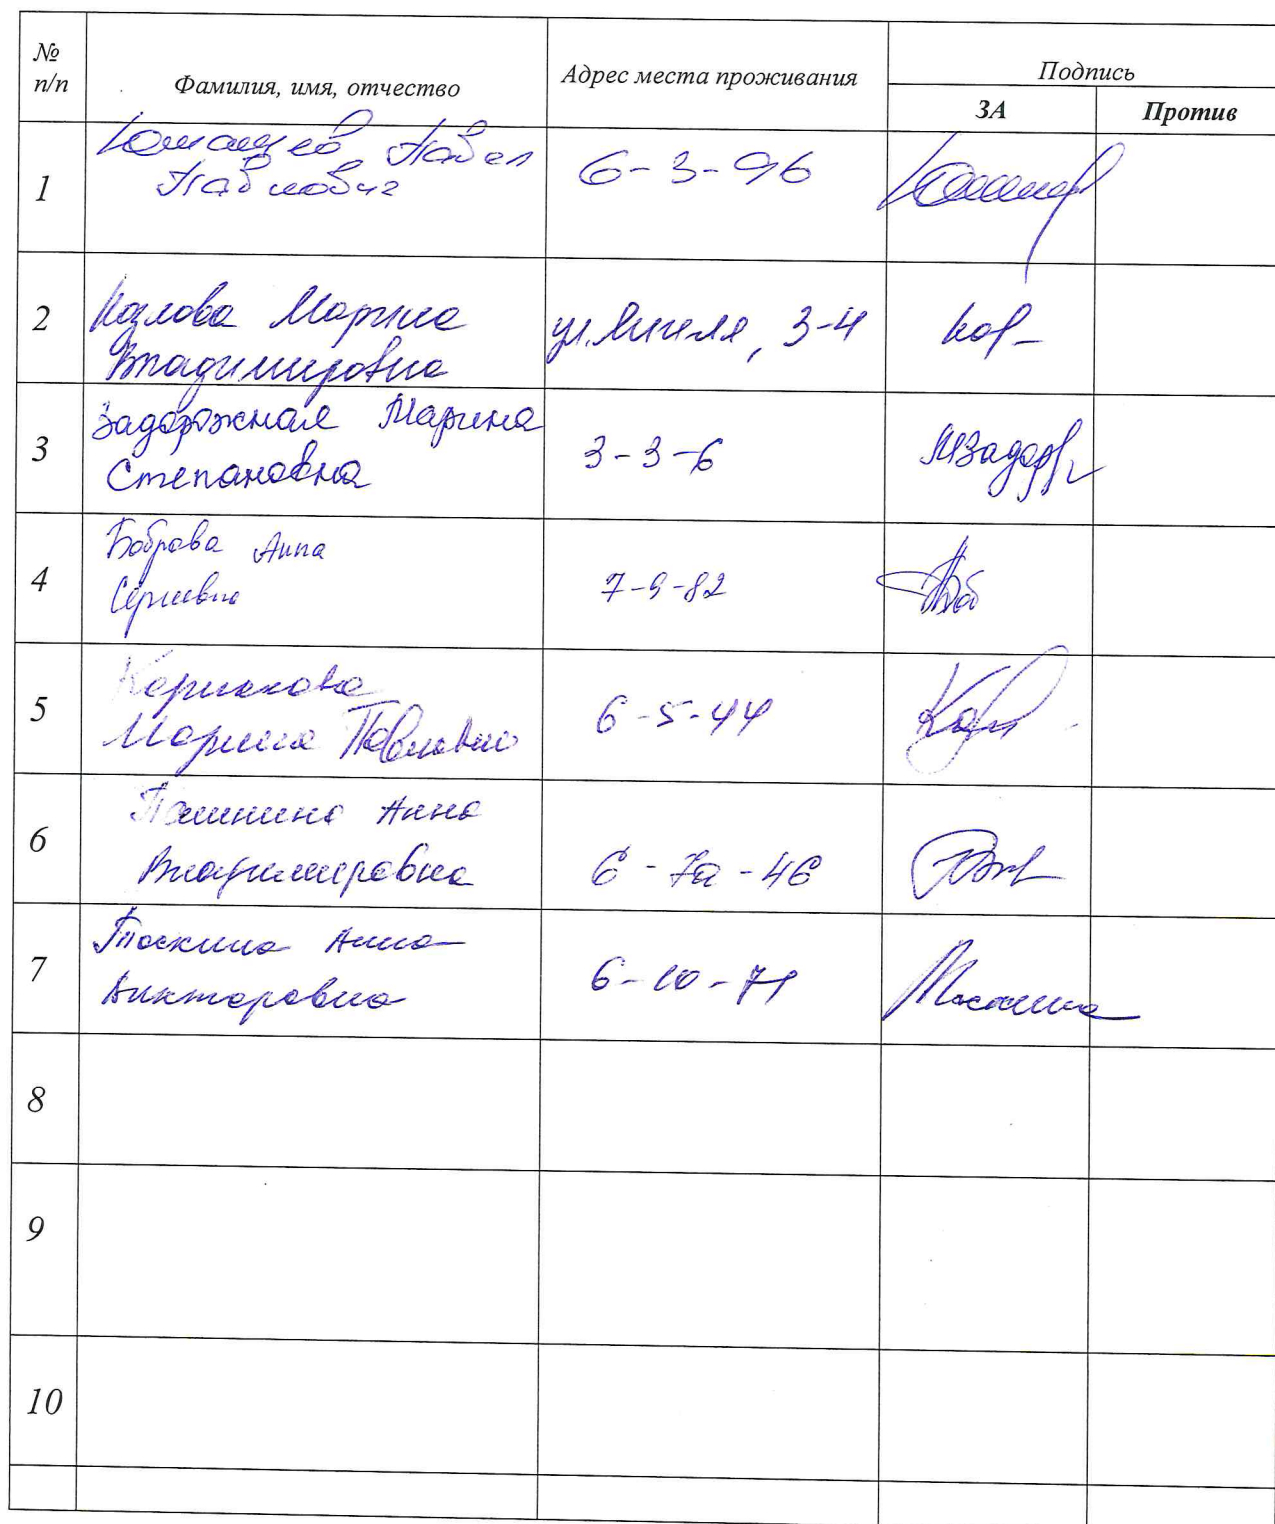 № п/п
Фамилия, имя, отчество
Адрес места проживания
Подпись
ЗА
Против
1
Павел
Павлович
6-3-96
2
Козлова Марина
Владимировна
ул. 3-4
3
Задорожная Марина
Степановна
3-3-6
МЗадор
4
Боброва Анна
Сергеевна
7-9-82
5
Марина Павловна
6-5-44
6
Анна
Владимировна
6-7а-46
7
Тоскина Анна
Викторовна
6-10-71
8
9
10